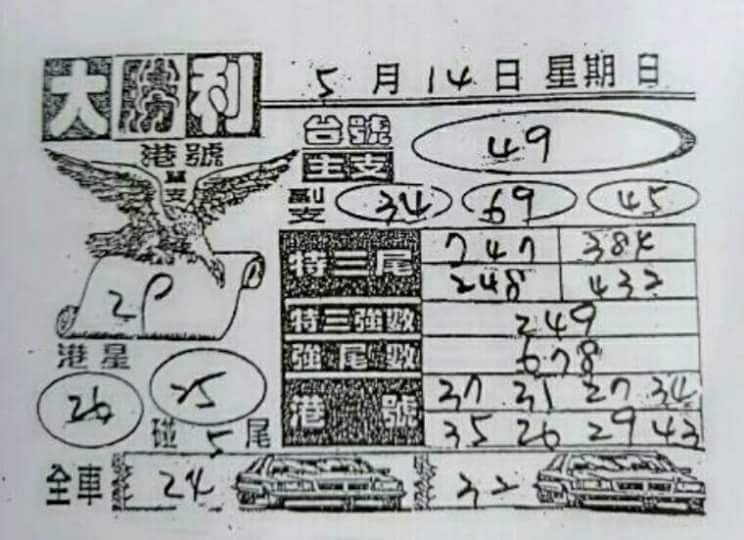 大勝利
5月14日 星期日
台號
主支 49
副支 34 69 45
港號
單支
29
特三尾 747 384
248 432
特三強数 249
強尾数 678
港號 37 31 27 34
35 26 29 43
港星
26 25
碰5尾
全車 24 32